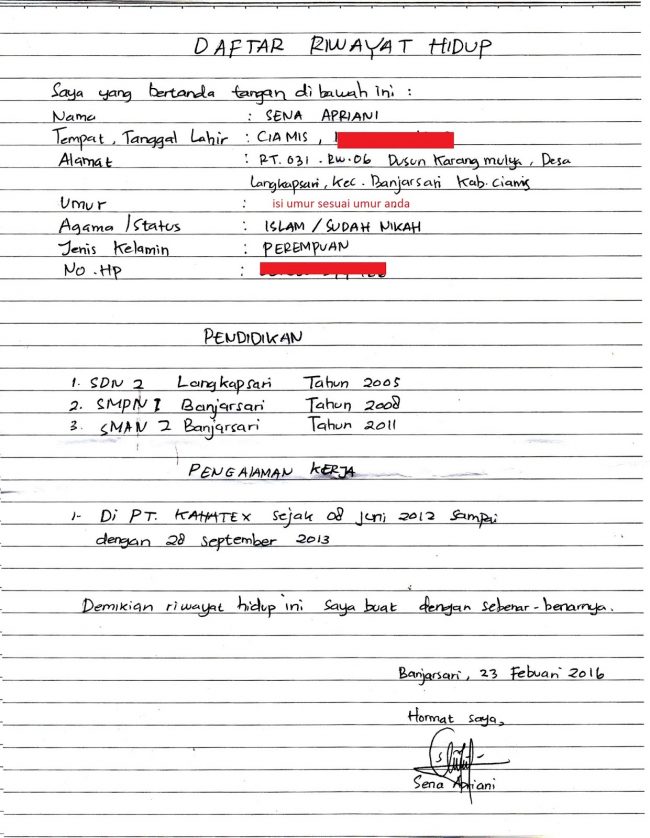 DAFTAR RIWAYAT HIDUP
Saya yang bertanda tangan di bawah ini :
Nama : SENA APRIANI
Tempat, Tanggal Lahir : CIAMIS ,
Alamat : RT. 031 . RW. 06 Dusun Karang mulya, Desa
Langkapsari, Kec. Banjarsari Kab. ciamis
Umur : isi umur sesuai umur anda
Agama / Status : ISLAM / SUDAH NIKAH
Jenis Kelamin : PEREMPUAN
No . Hp :
PENDIDIKAN
1. SDN 2 Langkapsari Tahun 2005
2. SMPN 1 Banjarsari Tahun 2008
3. SMAN 2 Banjarsari Tahun 2011
PENGALAMAN KERJA
1- Di PT. KAHATEX sejak 08 Juni 2012 sampai
dengan 28 september 2013
Demikian riwayat hidup ini saya buat dengan sebenar-benarnya.
Banjarsari, 23 Febuari 2016
Hormat saya,
Sena Apriani